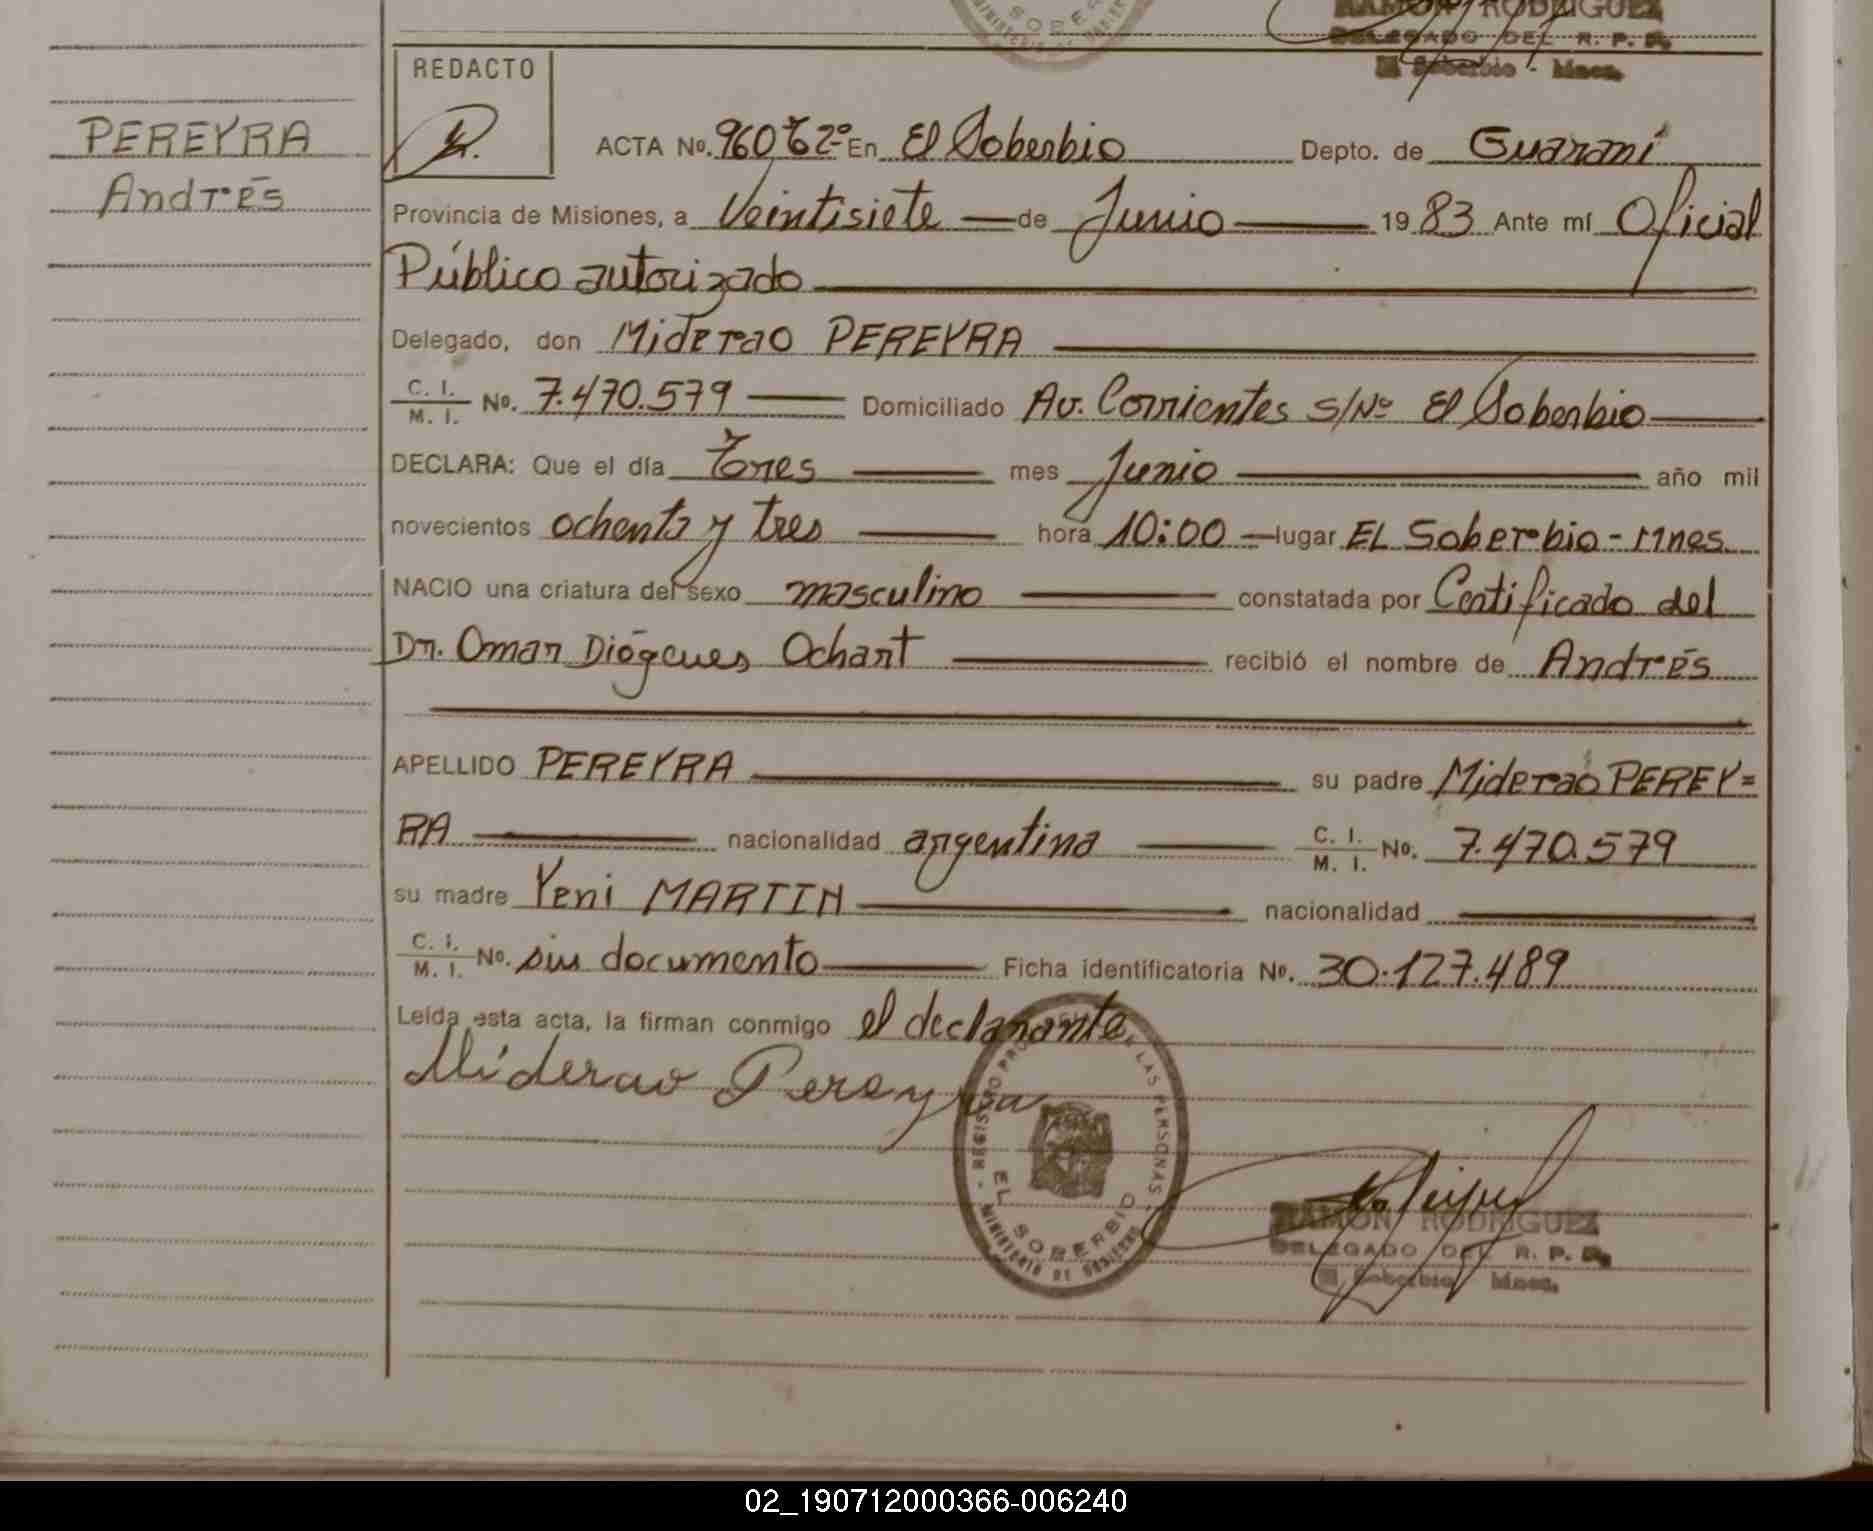 RAMON RODRIGUEZ
DELEGADO DEL R. P. P.
El Soberbio - Mnes.
SOBER
REDACTO
PEREYRA
Andrés
ACTA No. 960 T 2º En El Soberbio Depto. de Guaraní
Provincia de Misiones, a Veintisiete de Junio 1983 Ante mí Oficial
Público autorizado
Delegado, don Miderao PEREYRA
C. I. / M. I. No. 7.470.579 Domiciliado Av. Corrientes S/Nº El Soberbio
DECLARA: Que el día Tres mes Junio año mil
novecientos ochenta y tres hora 10:00 lugar EL Soberbio - Mnes.
NACIO una criatura del sexo masculino constatada por Certificado del
Dr. Omar Diógenes Ochart recibió el nombre de Andrés
APELLIDO PEREYRA su padre Miderao PEREY=
RA nacionalidad argentina C. I. / M. I. No. 7.470.579
su madre Yeni MARTIN nacionalidad
C. I. / M. I. No. sin documento Ficha identificatoria No. 30.127.489
Leída esta acta, la firman conmigo el declarante
Miderao Pereyra
REGISTRO PROVINCIAL DE LAS PERSONAS
EL SOBERBIO
MINISTERIO DE GOBIERNO
RAMON RODRIGUEZ
DELEGADO DEL R. P. P.
El Soberbio Mnes.
02_190712000366-006240